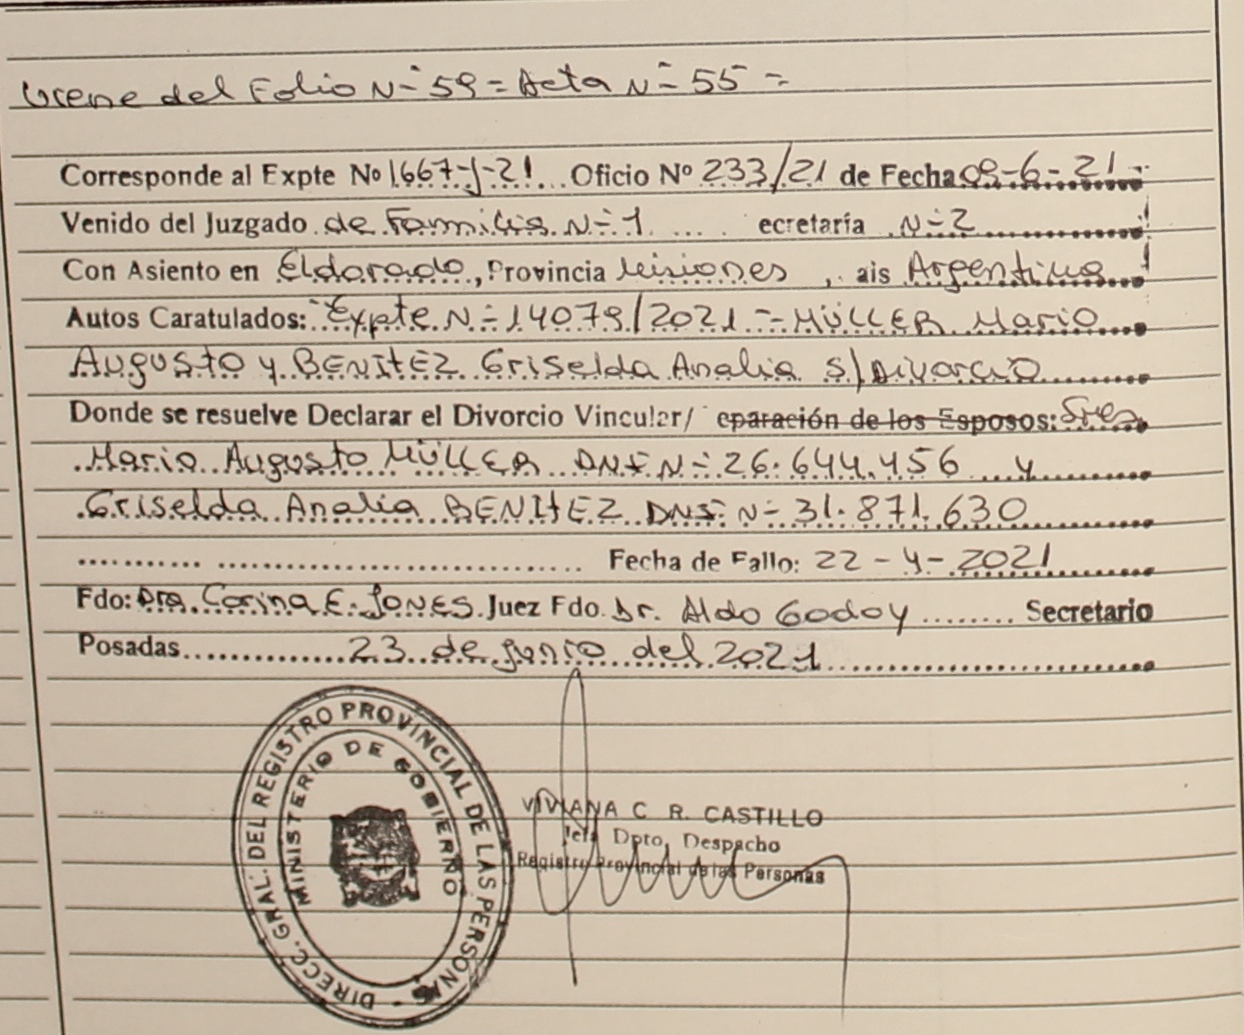 Viene del Folio N° 59 = Acta N° 55 =
Corresponde al Expte Nº 1667-J-21 Oficio Nº 233/21 de Fecha 09-6-21-
Venido del Juzgado de Familia N° 1 ecretaría N° 2
Con Asiento en Eldorado, Provincia Misiones, ais Argentina
Autos Caratulados: Expte N° 14079/2021 - MÜLLER Mario
Augusto y BENITEZ Griselda Analia S/Divorcio
Donde se resuelve Declarar el Divorcio Vincular/ eparación de los Esposos: Sres
Mario Augusto MÜLLER DNI N° 26.644.456 y
Griselda Analia BENITEZ DNI N° 31.871.630
Fecha de Fallo: 22-4-2021
Fdo: Dra. Corina E. JONES Juez Fdo. Dr. Aldo Godoy Secretario
Posadas 23 de junio del 2021
DIRECC. GRAL. DEL REGISTRO PROVINCIAL DE LAS PERSONAS
MINISTERIO DE GOBIERNO
VIVIANA C R. CASTILLO
Jefe Dpto, Despacho
Registro Provincial de las Personas